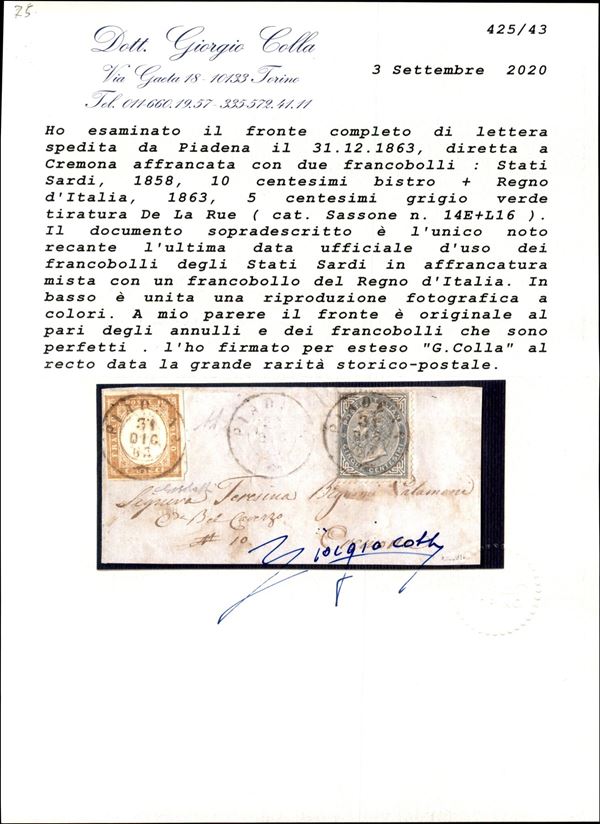 75
425/43
Dott. Giorgio Colla
Via Gaeta 18 - 10133 Torino
Tel. 011 660.19.57 - 335.572.41.11
3 Settembre 2020
Ho esaminato il fronte completo di lettera
spedita da Piadena il 31.12.1863, diretta a
Cremona affrancata con due francobolli : Stati
Sardi, 1858, 10 centesimi bistro + Regno
d'Italia, 1863, 5 centesimi grigio verde
tiratura De La Rue ( cat. Sassone n. 14E+L16 ).
Il documento sopradescritto è l'unico noto
recante l'ultima data ufficiale d'uso dei
francobolli degli Stati Sardi in affrancatura
mista con un francobollo del Regno d'Italia. In
basso è unita una riproduzione fotografica a
colori. A mio parere il fronte è originale al
pari degli annulli e dei francobolli che sono
perfetti . l'ho firmato per esteso "G.Colla" al
recto data la grande rarità storico-postale.
31
DIC
63
31
CINQUE CENTESIMI
Teresina
# 10
Giorgio Colla